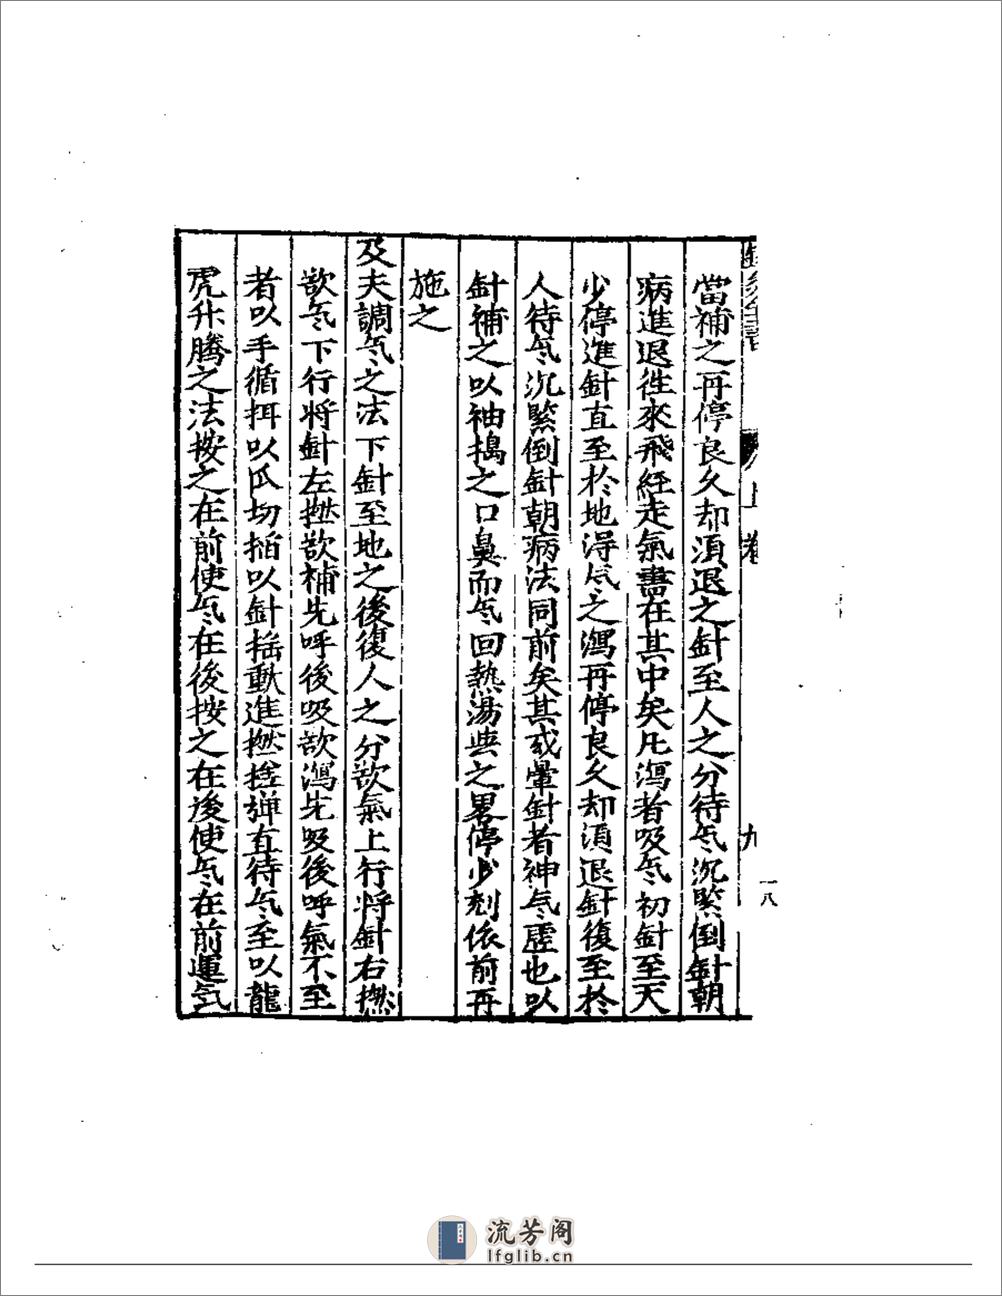 當補之再停良久却須退之針至人之分待気沉緊倒針朝
病進退徃來飛經走氣盡在其中矣凡瀉者吸気初針至天
少停進針直至於地得気之瀉再停良久却須退針復至於
人待気沉緊倒針朝病法同前矣其或暈針者神気虛也以
針補之以袖搗之口鼻而気回熱湯與之畧停少刻依前再
施之
及夫調気之法下針至地之後復人之分欲氣上行將針右撚
欲気下行將針左撚欲補先呼後吸欲瀉先吸後呼氣不至
者以手循捫以爪切掐以針揺動進撚搓弹直待気至以龍
虎升騰之法按之在前使気在後按之在後使気在前運気
上卷
九
一八
流芳阁
lfglib.cn